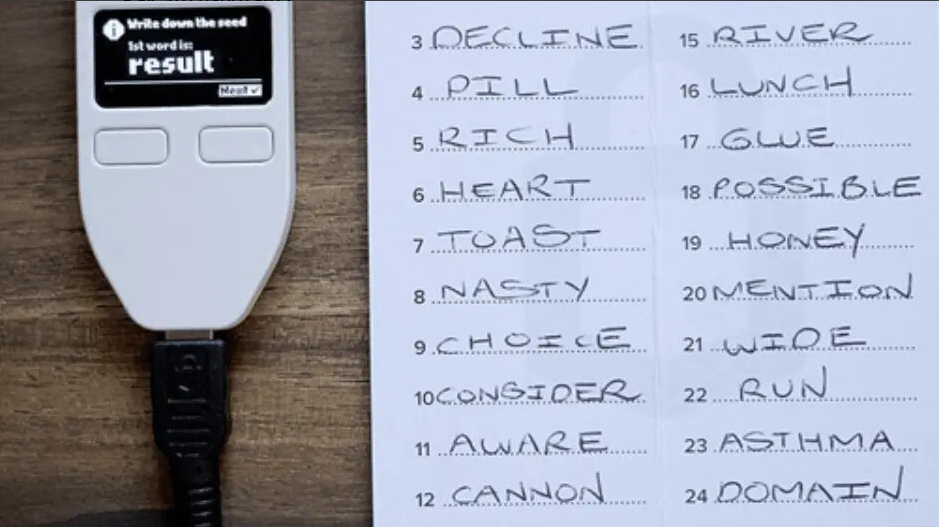 Write down the seed
1st word is:
result
Next ✓
3 DECLINE
4 PILL
5 RICH
6 HEART
7 TOAST
8 NASTY
9 CHOICE
10 CONSIDER
11 AWARE
12 CANNON
15 RIVER
16 LUNCH
17 GLUE
18 POSSIBLE
19 HONEY
20 MENTION
21 WIDE
22 RUN
23 ASTHMA
24 DOMAIN